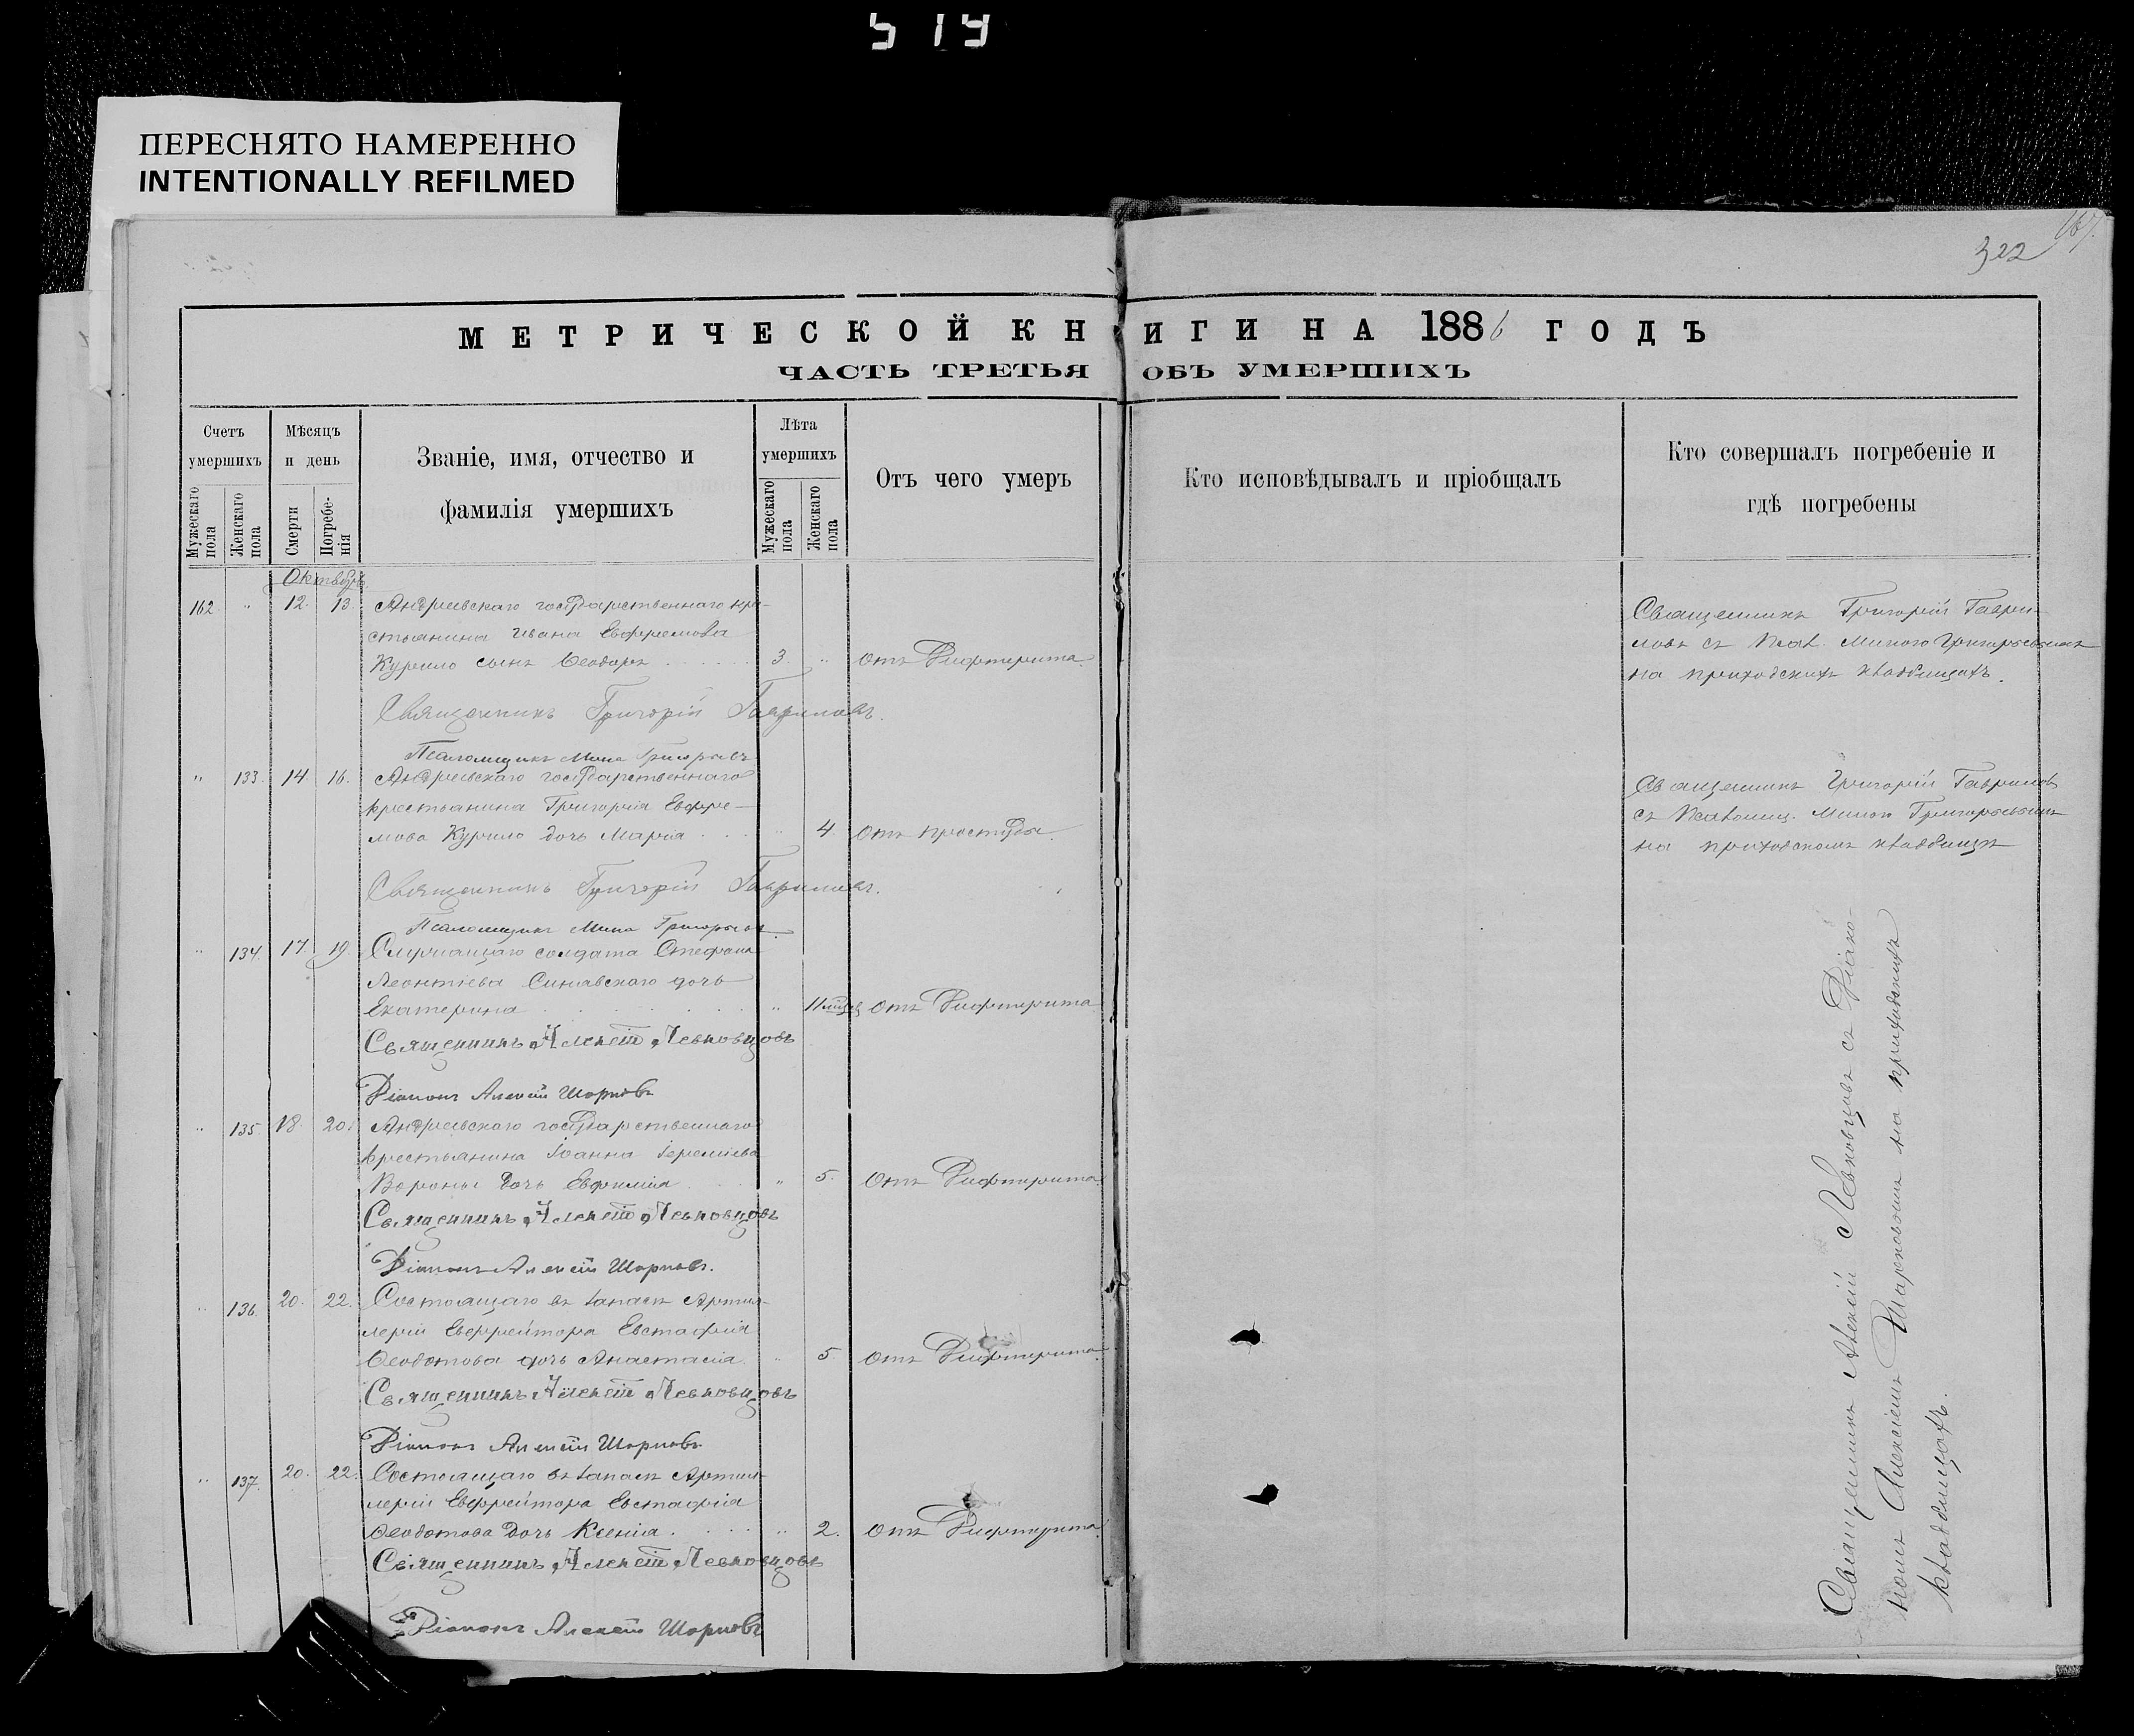 519
ПЕРЕСНЯТО НАМЕРЕННО
INTENTIONALLY REFILMED
322
МЕТРИЧЕСКОЙ КНИГИ НА 1886 ГОДЪ
ЧАСТЬ ТРЕТЬЯ ОБЪ УМЕРШИХЪ
Счетъ умершихъ
Мужескаго пола
Женскаго пола
Мѣсяцъ и день
Смерти
Погребенія
Званіе, имя, отчество и фамилія умершихъ
Лѣта умершихъ
Мужескаго пола
Женскаго пола
Отъ чего умеръ
Кто исповѣдывалъ и пріобщалъ
Кто совершалъ погребеніе и гдѣ погребены
Октябрь
162 " 12. 13. Андреевскаго государственнаго кре-
стьянина Ивана Евфремова
Курило сынъ Ѳеодоръ 3. " отъ Дифтерита.
Священникъ Григорій Гаври-
ловъ съ Псал. Миною Григорьевымъ
на приходскихъ кладбищахъ.
Священникъ Григорій Гавриловъ.
Псаломщикъ Мина Григорьевъ
" 133. 14. 16. Андреевскаго государственнаго
крестьянина Григорія Евфре-
мова Курило дочь Марія " 4 отъ простуды.
Священникъ Григорій Гавриловъ
съ Псаломщ. Миною Григорьевымъ
на приходскомъ кладбищѣ
Священникъ Григорій Гавриловъ.
Псаломщикъ Мина Григорьевъ.
" 134. 17. 19. Служащаго солдата Стефана
Леонтіева Синявскаго дочь
Екатерина " 11 мѣсяц отъ Дифтерита
Священникъ Алексѣй Левковцовъ
Діаконъ Алексѣй Шорковъ
" 135. 18. 20. Андреевскаго государственнаго
крестьянина Іоанна Іереміева
Вороны дочь Евфимія " 5. отъ Дифтерита.
Священникъ Алексѣй Левковцовъ
Діаконъ Алексѣй Шорковъ.
" 136. 20. 22. Состоящаго въ запасѣ Артил-
леріи Ефрейтора Евстафія
Ѳеодотова дочь Анастасія " 5 отъ Дифтерита.
Священникъ Алексѣй Левковцовъ
Діаконъ Алексѣй Шорковъ
" 137. 20. 22. Состоящаго въ запасѣ Артил-
леріи Ефрейтора Евстафія
Ѳеодотова дочь Ксенія. " 2. отъ Дифтерита.
Священникъ Алексѣй Левковцовъ
Діаконъ Алексѣй Шорковъ
Священникъ Алексій Левковцовъ съ Діако-
номъ Алексіемъ Шорковымъ на приходскихъ
кладбищахъ.